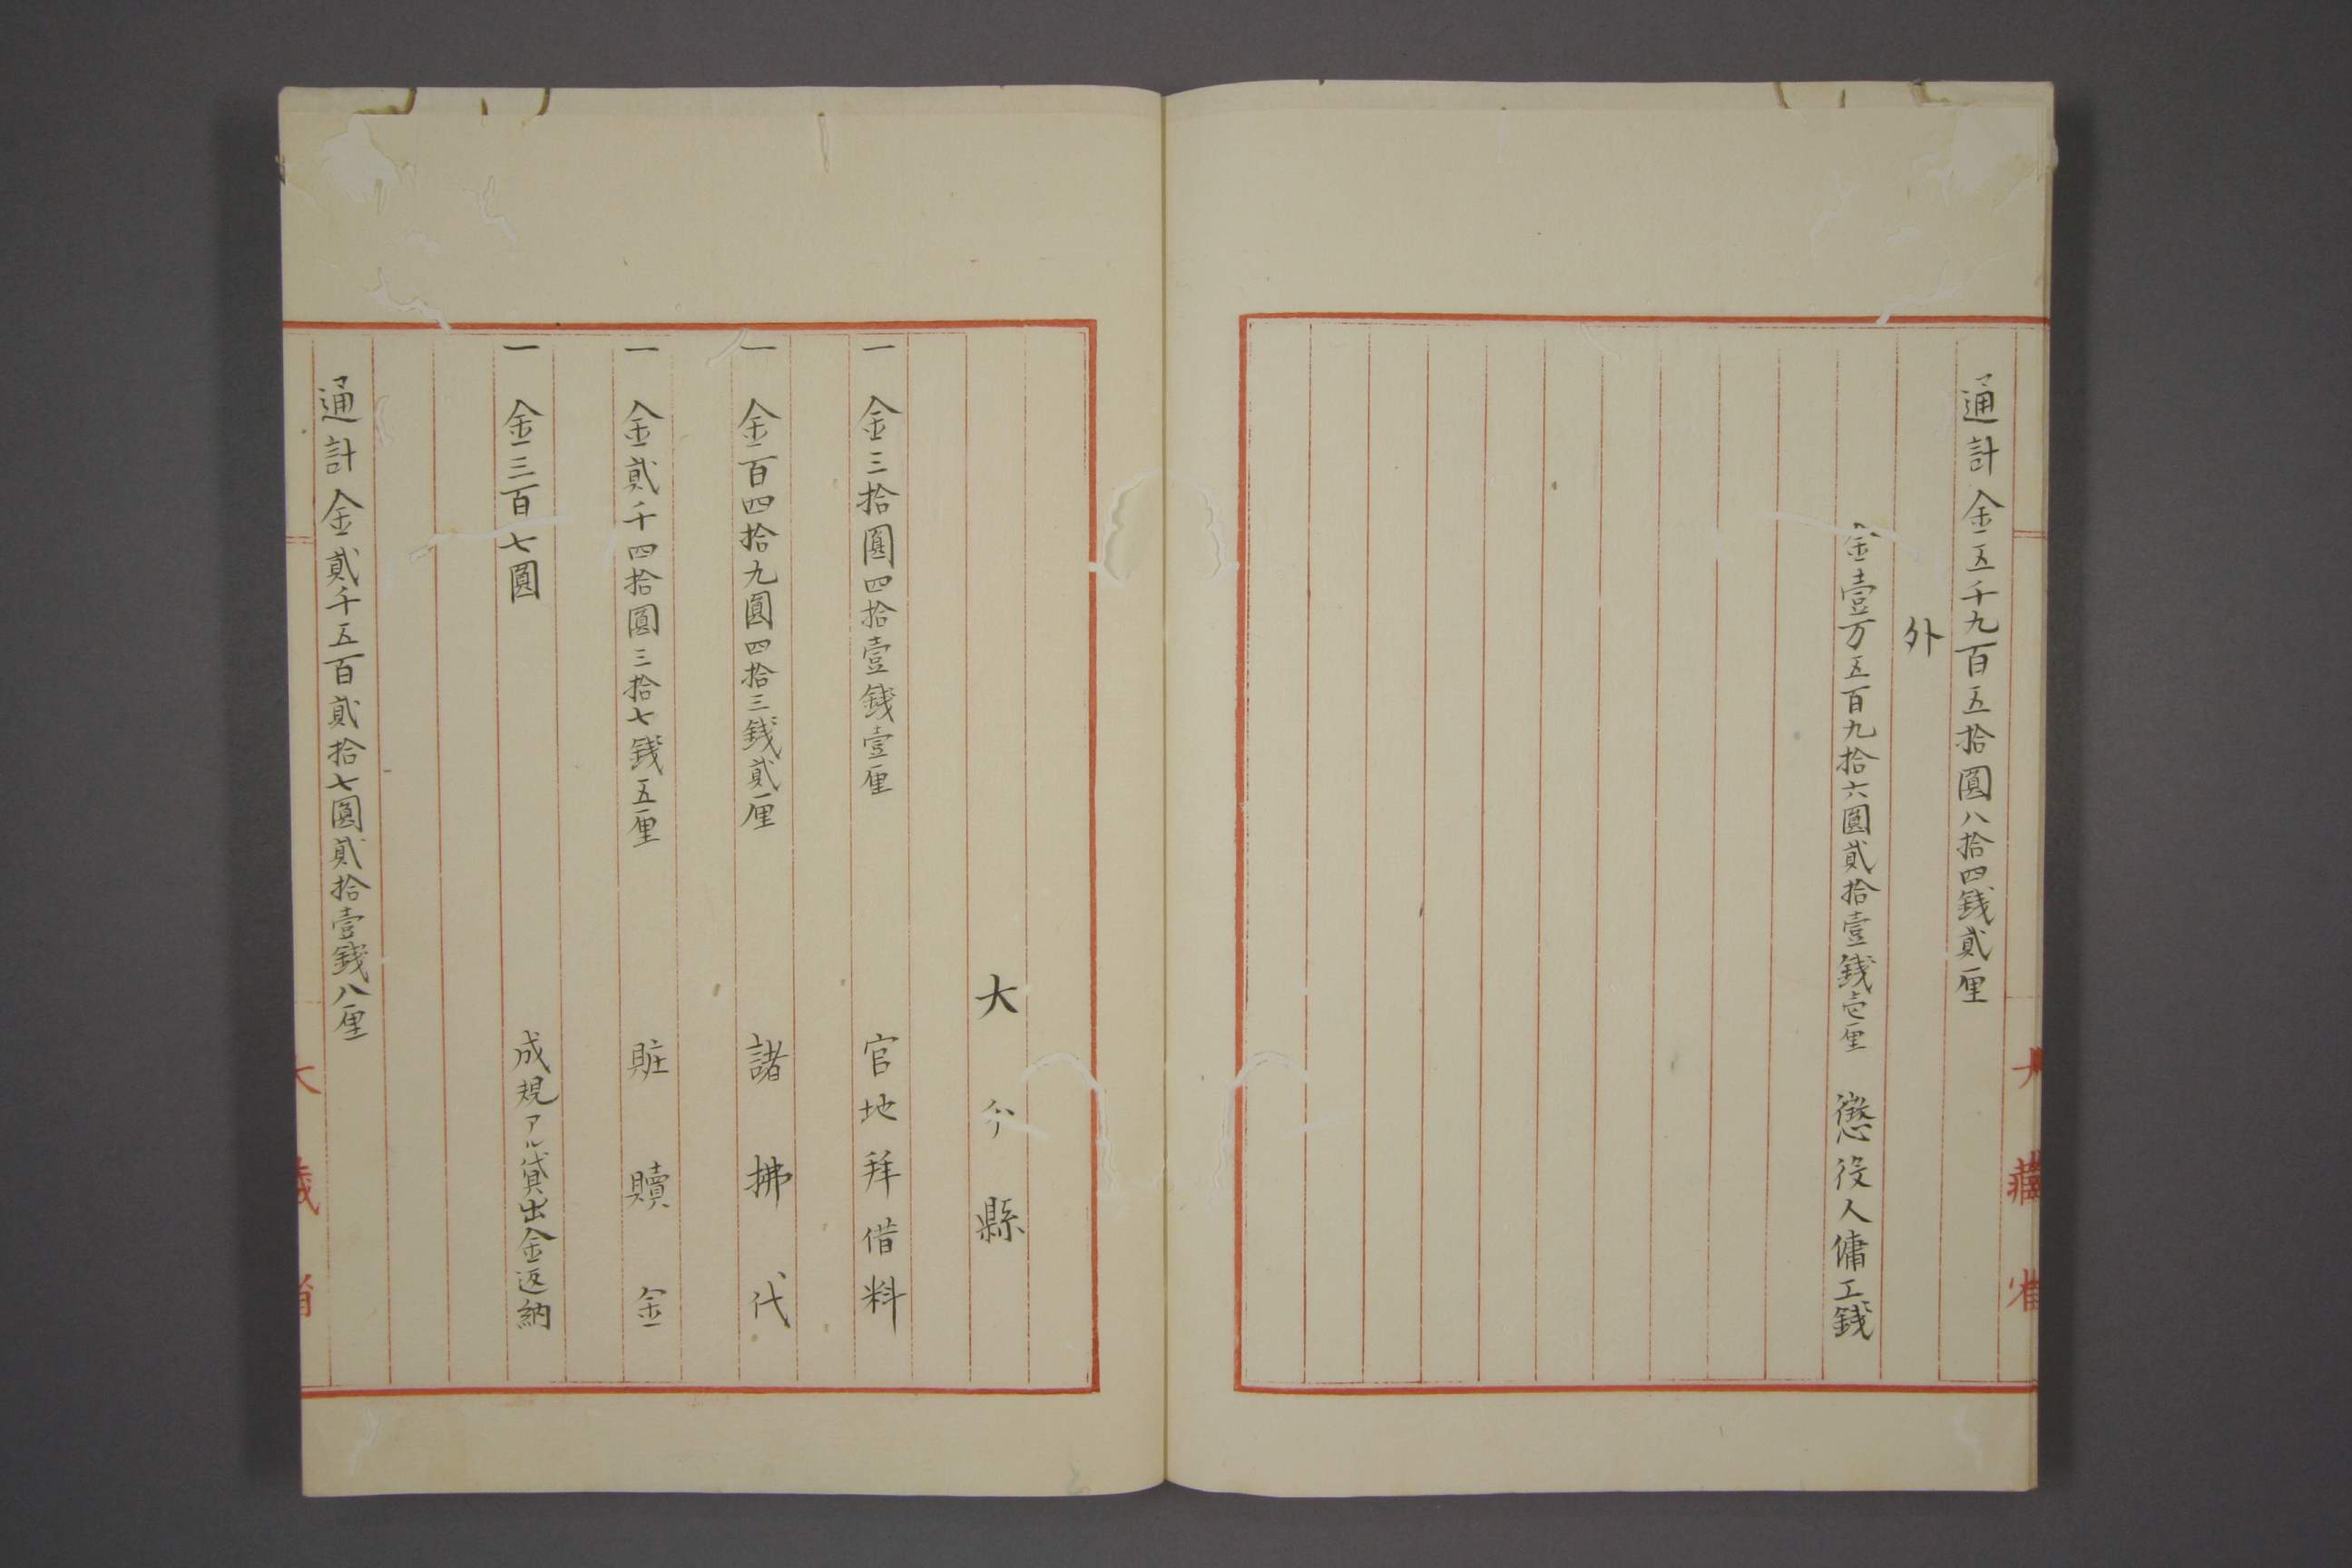 通計金五千九百五拾圓八拾四錢貳厘
外
金壹万五百九拾六圓貳拾壹錢壱厘 懲役人傭工錢
大藏省
大分縣
一 金三拾圓四拾壹錢壹厘 官地拜借料
一 金百四拾九圓四拾三錢貳厘 諸拂代
一 金貳千四拾圓三拾七錢五厘 賍贖金
一 金三百七圓 成規アル貸出金返納
通計金貳千五百貳拾七圓貳拾壹錢八厘
大藏省